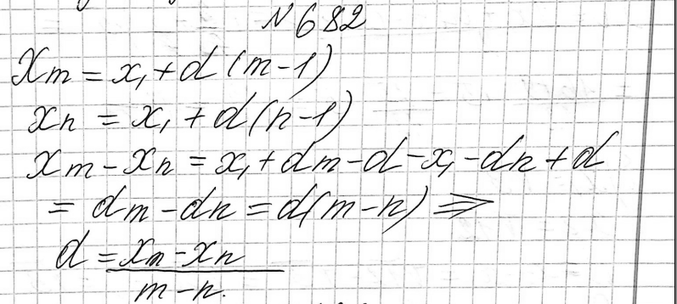 №682
xm = x₁ + d(m-1)
xn = x₁ + d(n-1)
xm - xn = x₁ + dm - d - x₁ - dn + d
= dm - dn = d(m-n) ⇒
d = xm - xn
m - n.